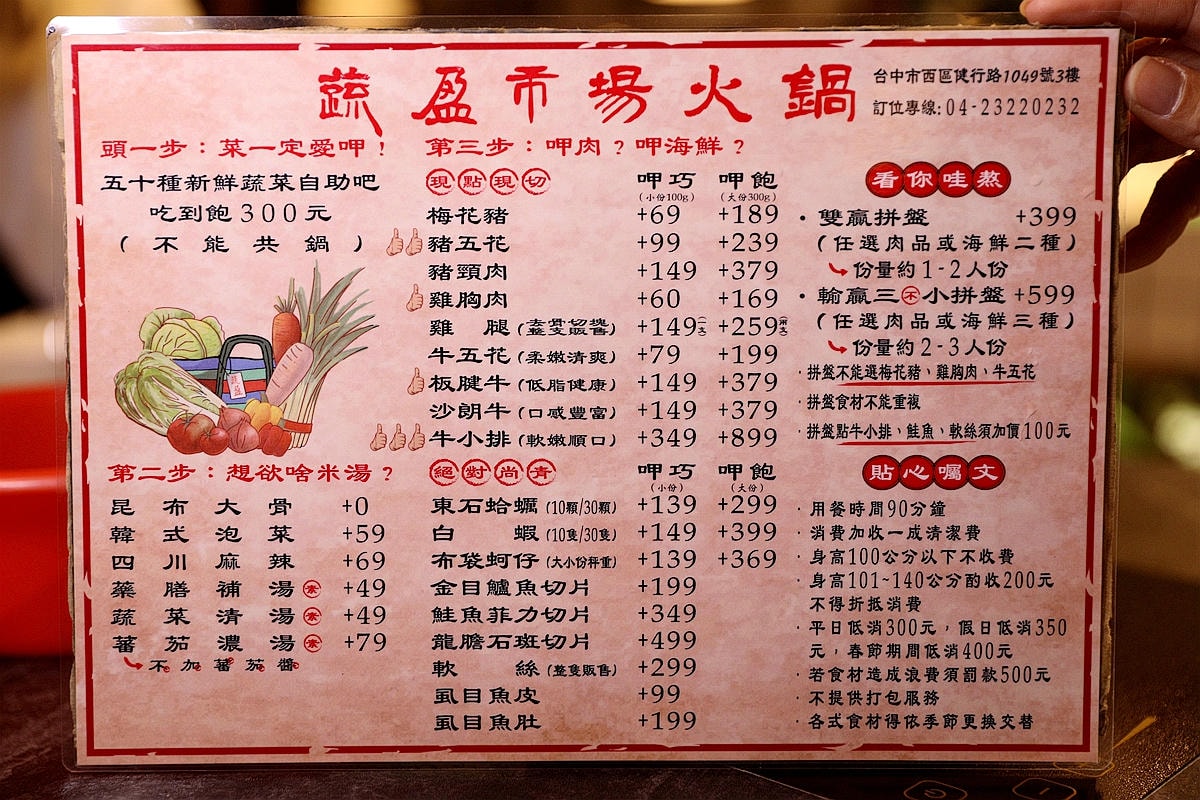 蔬盈市場火鍋
台中市西區健行路1049號3樓
訂位專線:04-23220232
頭一步：菜一定愛呷！
五十種新鮮蔬菜自助吧
吃到飽300元
(不能共鍋)
第二步：想欲啥米湯？
昆布大骨 +0
韓式泡菜 +59
四川麻辣 +69
藥膳補湯 素 +49
蔬菜清湯 素 +49
蕃茄濃湯 素 +79
不加蕃茄醬
第三步：呷肉？呷海鮮？
現點現切 呷巧 呷飽
(小份100g) (大份300g)
梅花豬 +69 +189
豬五花 +99 +239
豬頸肉 +149 +379
雞胸肉 +60 +169
雞腿 +149 +259
牛五花(柔嫩清爽) +79 +199
板腱牛(低脂健康) +149 +379
沙朗牛(口感豐富) +149 +379
牛小排(軟嫩順口) +349 +899
絕對尚青 呷巧 呷飽
(小份) (大份)
東石蛤蠣(10顆/30顆) +139 +299
白蝦(10隻/30隻) +149 +399
布袋蚵仔(大小份秤重) +139 +369
金目鱸魚切片 +199
鮭魚菲力切片 +349
龍膽石斑切片 +499
軟絲(整隻販售) +299
虱目魚皮 +99
虱目魚肚 +199
看你哇熬
·雙贏拼盤 +399
(任選肉品或海鮮二種)
份量約1-2人份
·輸贏三不小拼盤 +599
(任選肉品或海鮮三種)
份量約2-3人份
·拼盤不能選梅花豬、雞胸肉、牛五花
·拼盤食材不能重複
·拼盤點牛小排、鮭魚、軟絲須加價100元
貼心囑文
·用餐時間90分鐘
·消費加收一成清潔費
·身高100公分以下不收費
·身高101~140公分酌收200元
不得折抵消費
·平日低消300元，假日低消350
元，春節期間低消400元
·若食材造成浪費須罰款500元
·不提供打包服務
·各式食材得依季節更換交替